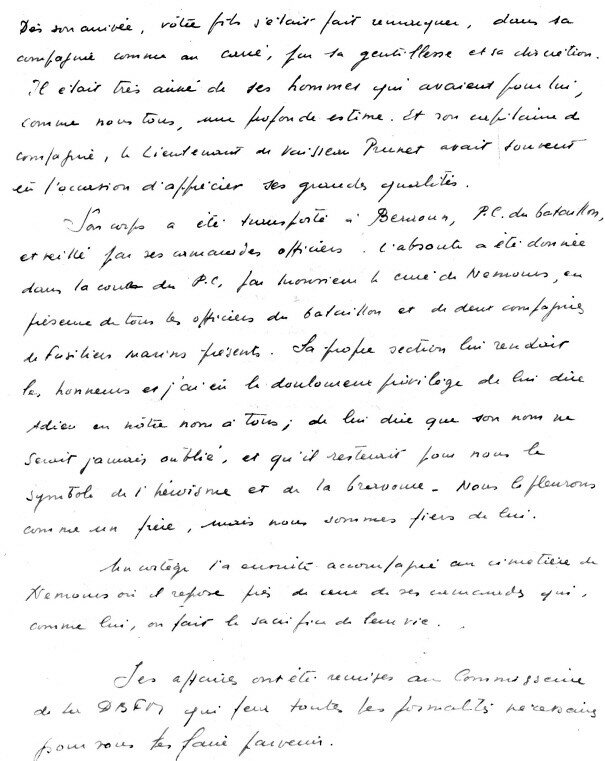 Dès son arrivée, vôtre fils s'était fait remarquer, dans sa
compagnie comme au carré, par sa gentillesse et sa discrétion.
Il était très aimé de ses hommes qui avaient pour lui,
comme nous tous, une profonde estime. Et son capitaine de
compagnie, le Lieutenant de Vaisseau Prunet avait souvent
eû l'occasion d'apprécier ses grandes qualités.
Son corps a été transporté à P.C. du bataillon,
et veillé par ses camarades officiers. L'absoute a été donnée
dans la cour du P.C. par Monsieur le curé de Nemours, en
présence de tous les officiers du bataillon et de deux compagnies
de fusiliers marins présents. Sa propre section lui rendait
les honneurs et j'ai eû le douloureux privilège de lui dire
adieu en nôtre nom à tous; de lui dire que son nom ne
serait jamais oublié, et qu'il resterait pour nous le
symbole de l'héroïsme et de la bravoure. Nous le pleurons
comme un frère, mais nous sommes fiers de lui.
Un cortège l'a ensuite accompagné au cimetière de
Nemours où il repose près de ceux de ses camarades qui,
comme lui, on fait le sacrifice de leur vie.
Ses affaires ont été remises au Commissaire
de la DBFM qui fera toutes les formalités nécessaires
pour vous les faire parvenir.